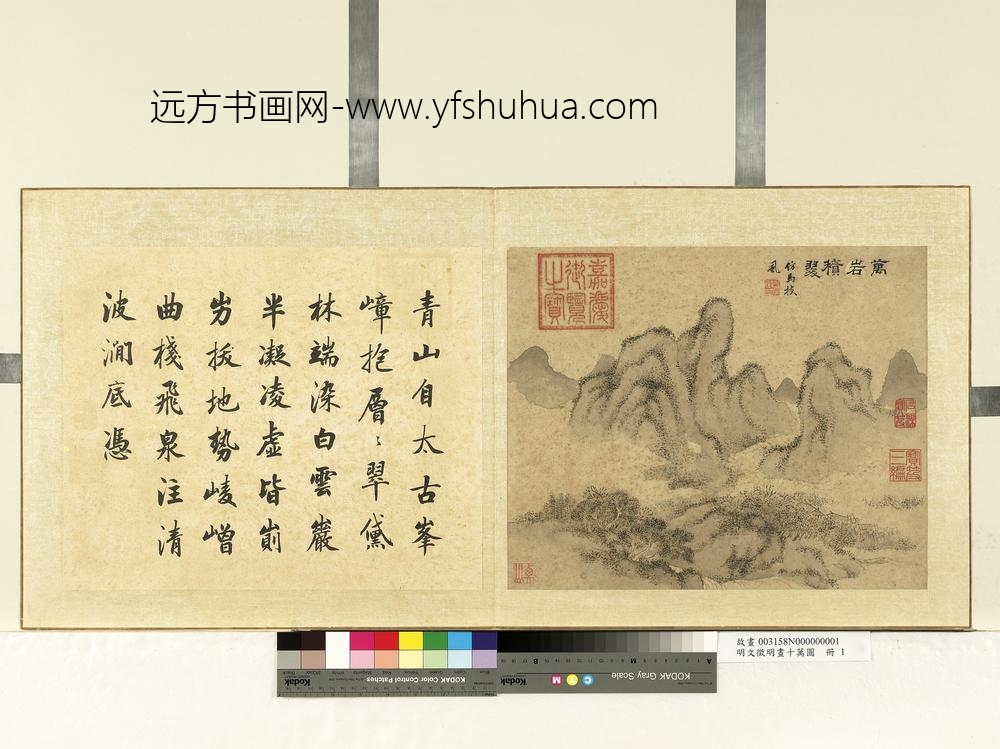 远方书画网-www.yfshuhua.com
青山自太古峯
嶂抱層〻翠黛
林端染白雲巖
半凝凌虛皆崱
屴拔地勢崚嶒
曲棧飛泉注清
波澗底馮
萬岩積翠
仿馬扶
風
嘉慶
御覽
之寶
寶笈
三編
Kodak Color Control Patches
Blue
Cyan
Green
Yellow
Red
Magenta
White
3/Color
Black
KODAK Gray Scale
C Y M
A 1 2 3 4 5 6 M 8 9 10 11 12 13 14 15 B 17 18 19
故畫 003158N000000001
明文徵明畫十萬圖 冊 1